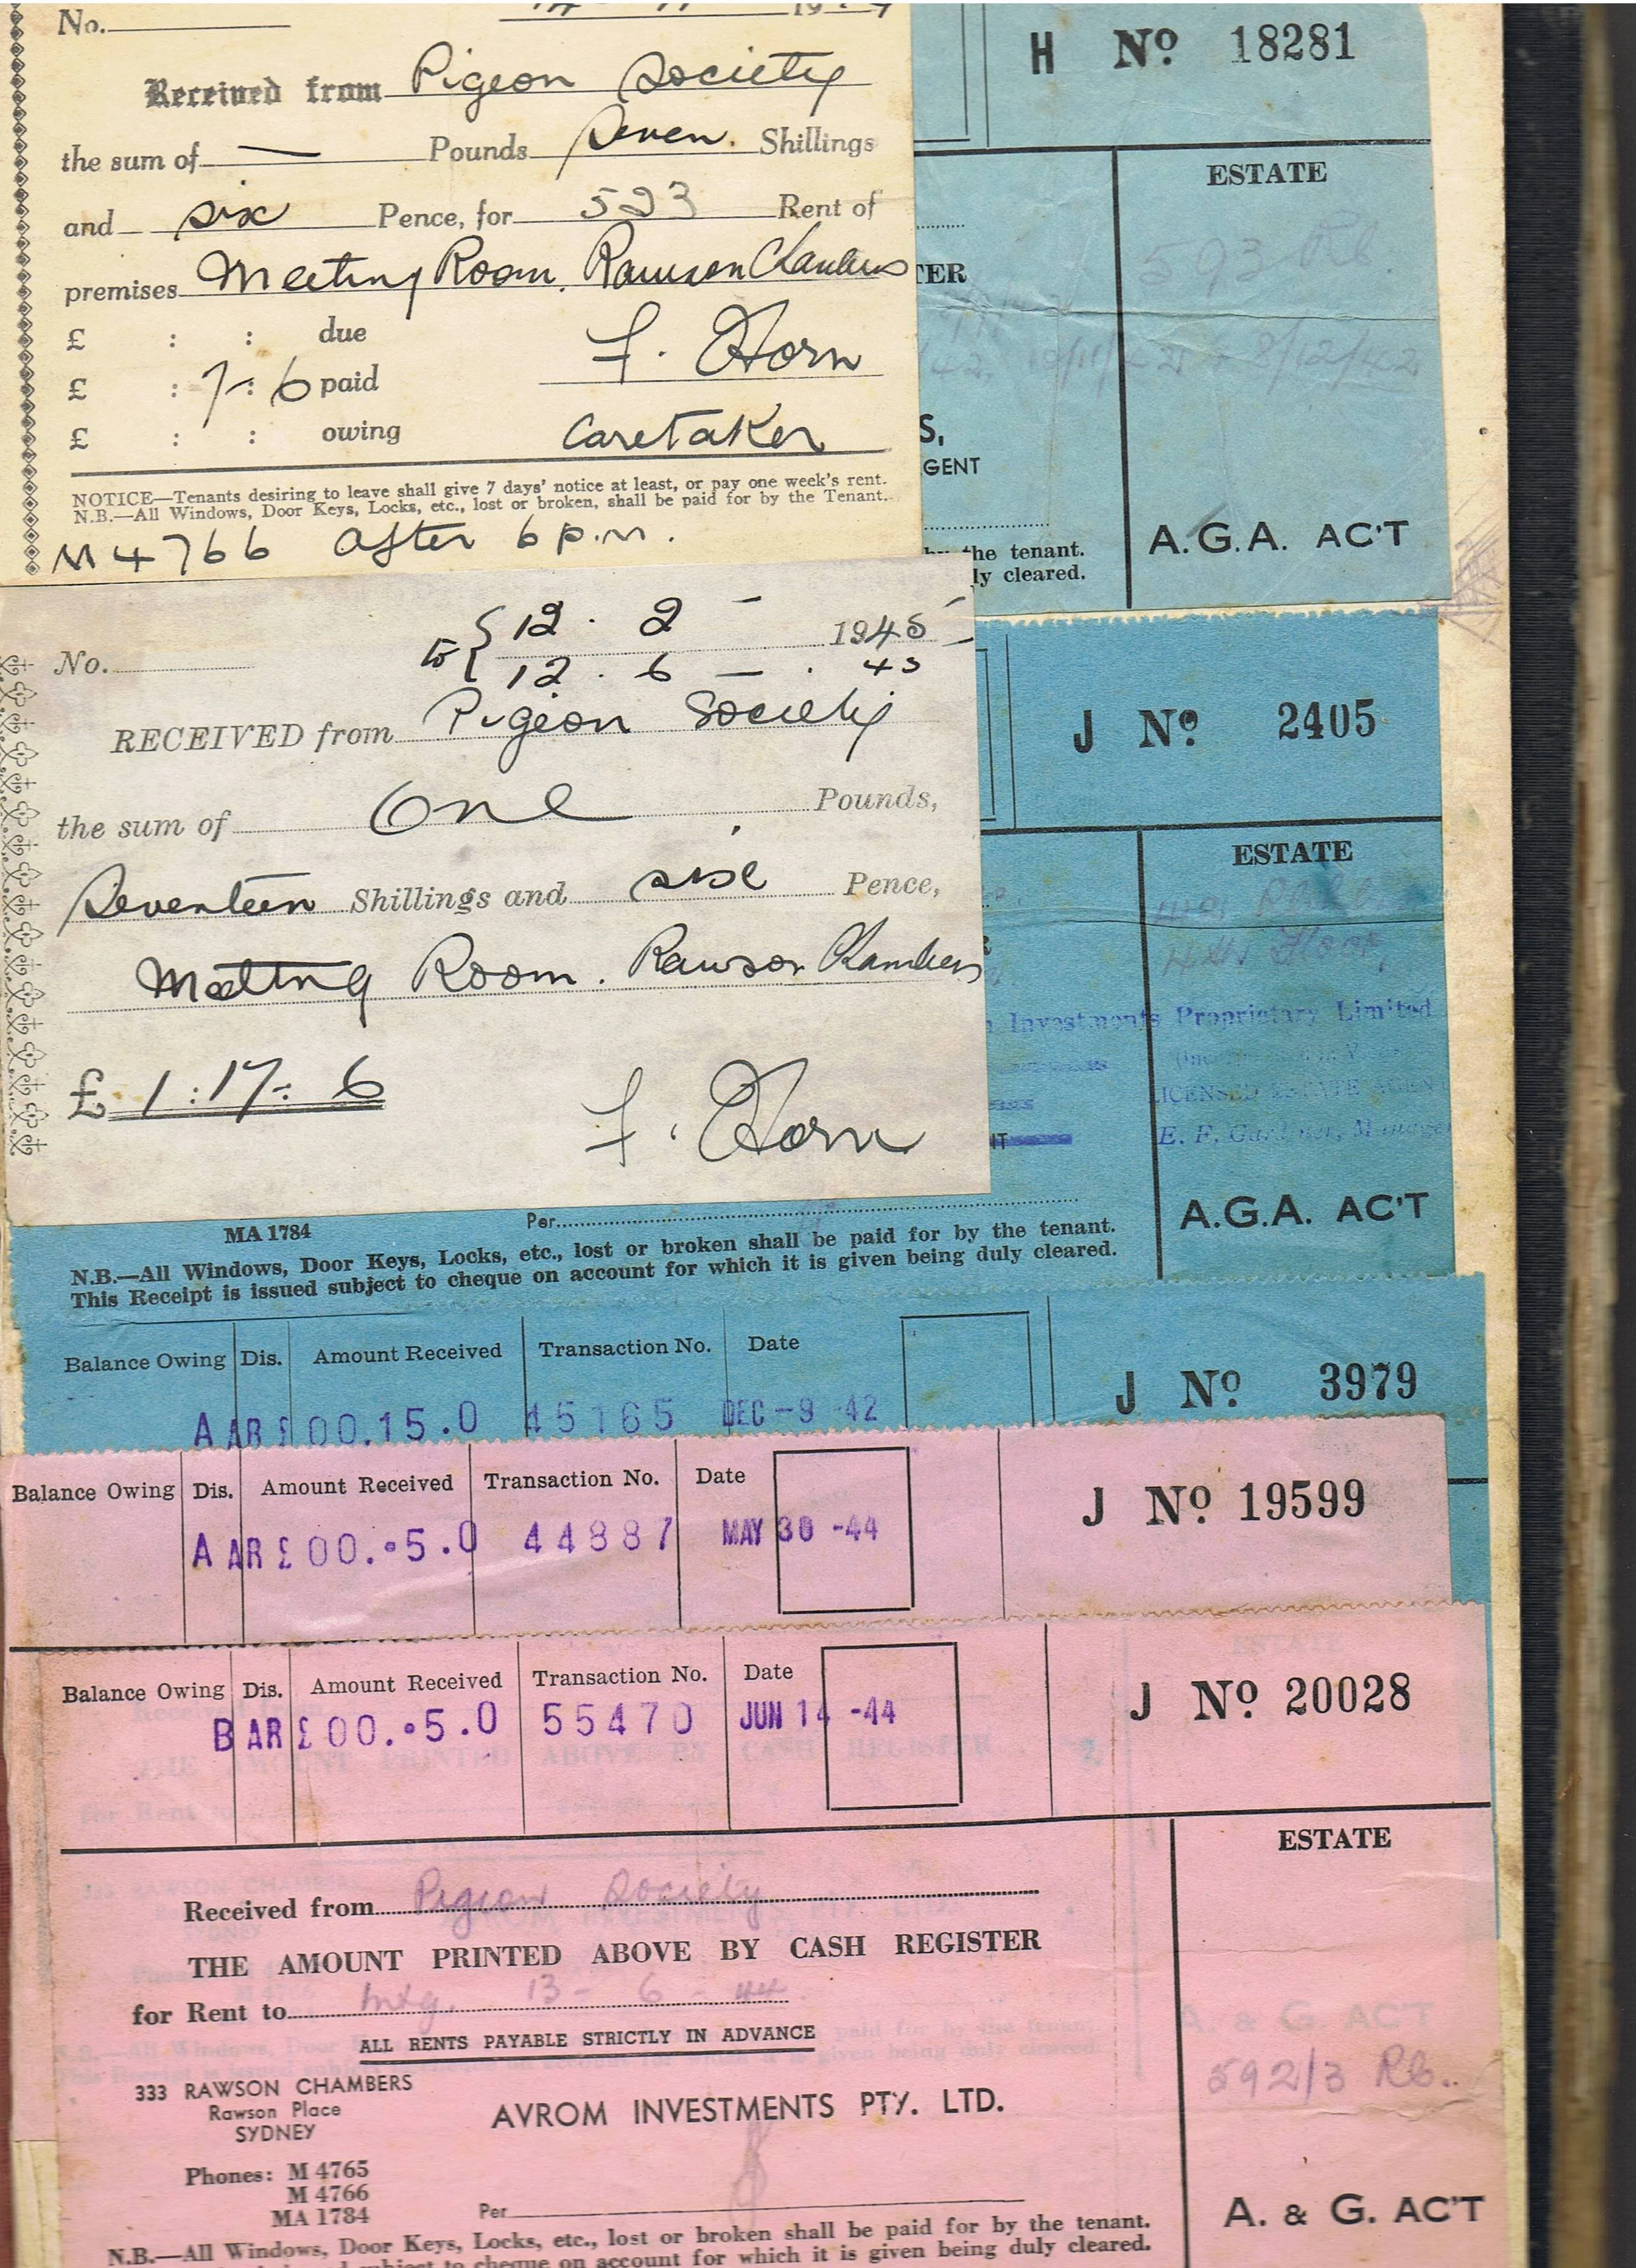 No.
Received from Pigeon Society
the sum of — Pounds Seven. Shillings
and six Pence, for 523 Rent of
premises Meeting Room. Rawson Chambers
£ : : due
£ : 7 : 6 paid
£ : : owing
F. Horn
Caretaker
NOTICE—Tenants desiring to leave shall give 7 days' notice at least, or pay one week's rent.
N.B.—All Windows, Door Keys, Locks, etc., lost or broken, shall be paid for by the Tenant.
M 4766 after 6 p.m.
H Nº 18281
ESTATE
TER
S,
GENT
the tenant.
ly cleared.
A.G.A. AC'T
12 . 2 — 1945
No. to 12 . 6 — . 45
RECEIVED from Pigeon Society
the sum of One Pounds,
Seventeen Shillings and six Pence,
Meeting Room. Rawson Chambers
£ 1 : 17 : 6
F. Horn
J Nº 2405
ESTATE
Investments Proprietary Limited
LICENSED ESTATE AGEN
E. F. Gardiner, Manage
A.G.A. AC'T
MA 1784 Per
N.B.—All Windows, Door Keys, Locks, etc., lost or broken shall be paid for by the tenant.
This Receipt is issued subject to cheque on account for which it is given being duly cleared.
Balance Owing Dis. Amount Received Transaction No. Date
A AR £00.15.0 45165 DEC -9 42
J Nº 3979
Balance Owing Dis. Amount Received Transaction No. Date
A AR £00.•5.0 44887 MAY 30 -44
J Nº 19599
Balance Owing Dis. Amount Received Transaction No. Date
B AR £00.•5.0 55470 JUN 14 -44
J Nº 20028
ESTATE
Received from Pigeon Society
THE AMOUNT PRINTED ABOVE BY CASH REGISTER
for Rent to Mtg. 13 - 6 - 44.
ALL RENTS PAYABLE STRICTLY IN ADVANCE
333 RAWSON CHAMBERS
Rawson Place
SYDNEY
AVROM INVESTMENTS PTY. LTD.
592/3 Rb.
Phones: M 4765
M 4766
MA 1784
Per
A. & G. AC'T
N.B.—All Windows, Door Keys, Locks, etc., lost or broken shall be paid for by the tenant.
subject to cheque on account for which it is given being duly cleared.